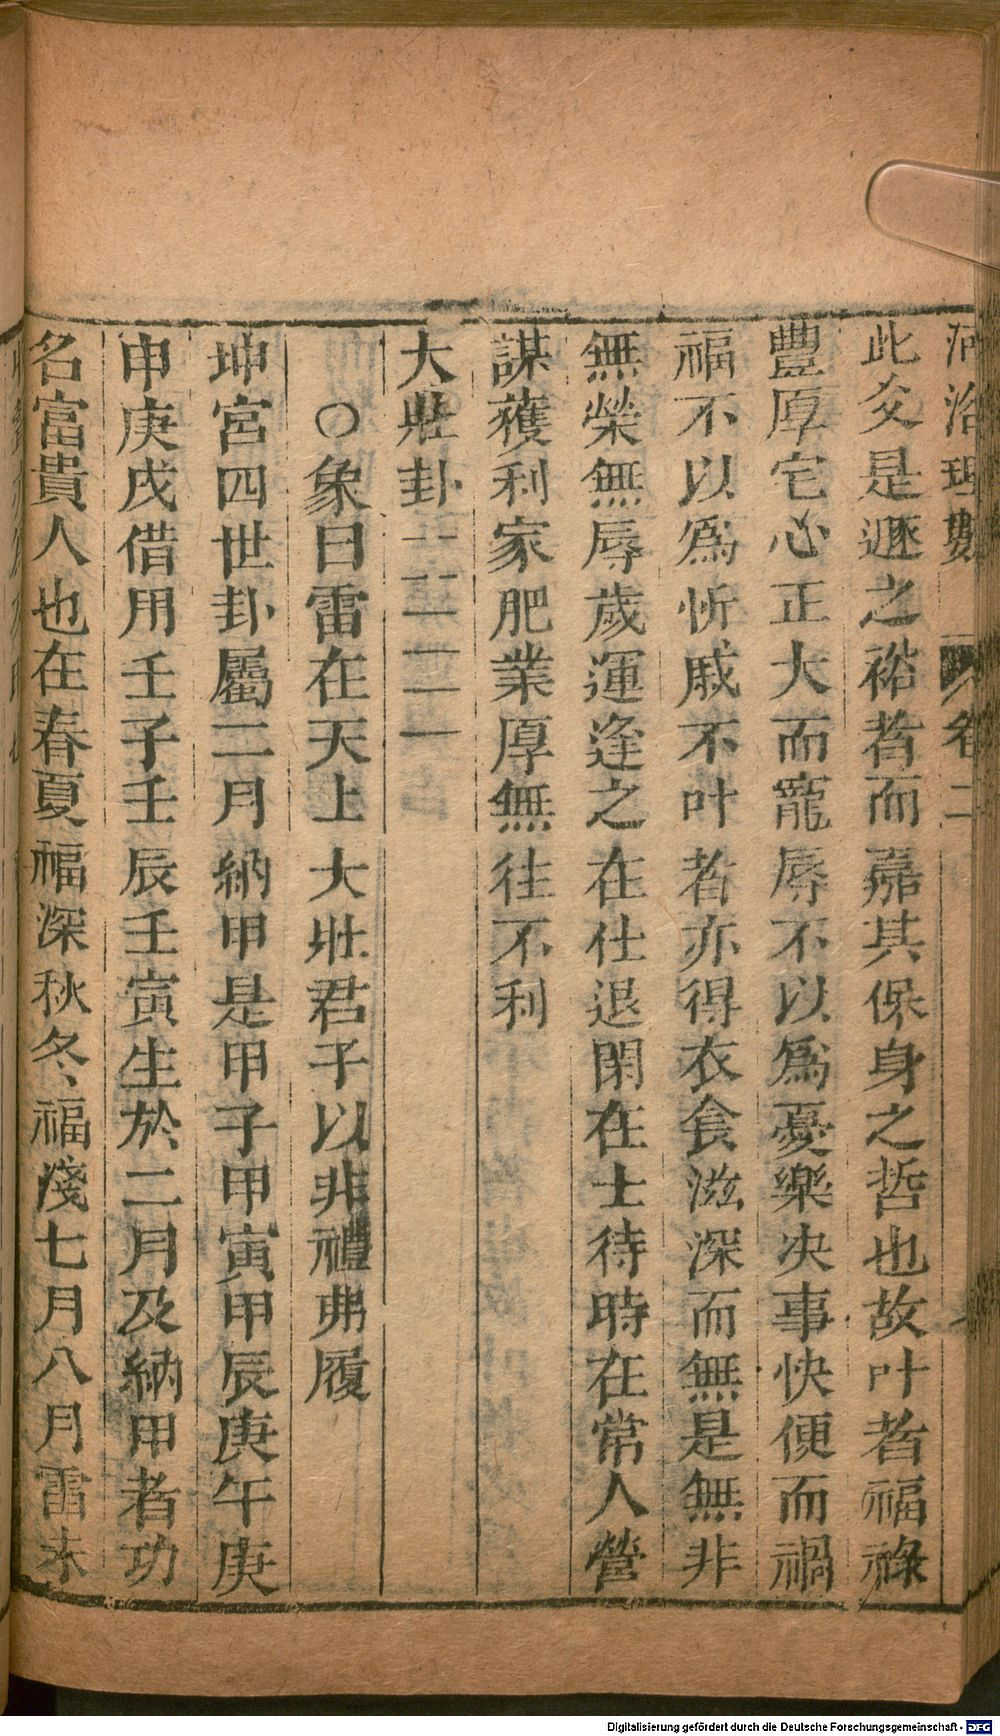 河洛理數 卷二
此爻是遯之裕者而嘉其保身之哲也故叶者福祿
豐厚宅心正大而寵辱不以爲憂樂决事快便而禍
福不以爲忻戚不叶者亦得衣食滋深而無是無非
無榮無辱歲運逢之在仕退閑在士待時在常人營
謀獲利家肥業厚無往不利
大壯卦
○象曰雷在天上大壯君子以非禮弗履
坤宮四世卦屬二月納甲是甲子甲寅甲辰庚午庚
申庚戌借用壬子壬辰壬寅生於二月及納甲者功
名富貴人也在春夏福深秋冬福淺七月八月雷未
Digitalisierung gefördert durch die Deutsche Forschungsgemeinschaft - DFG